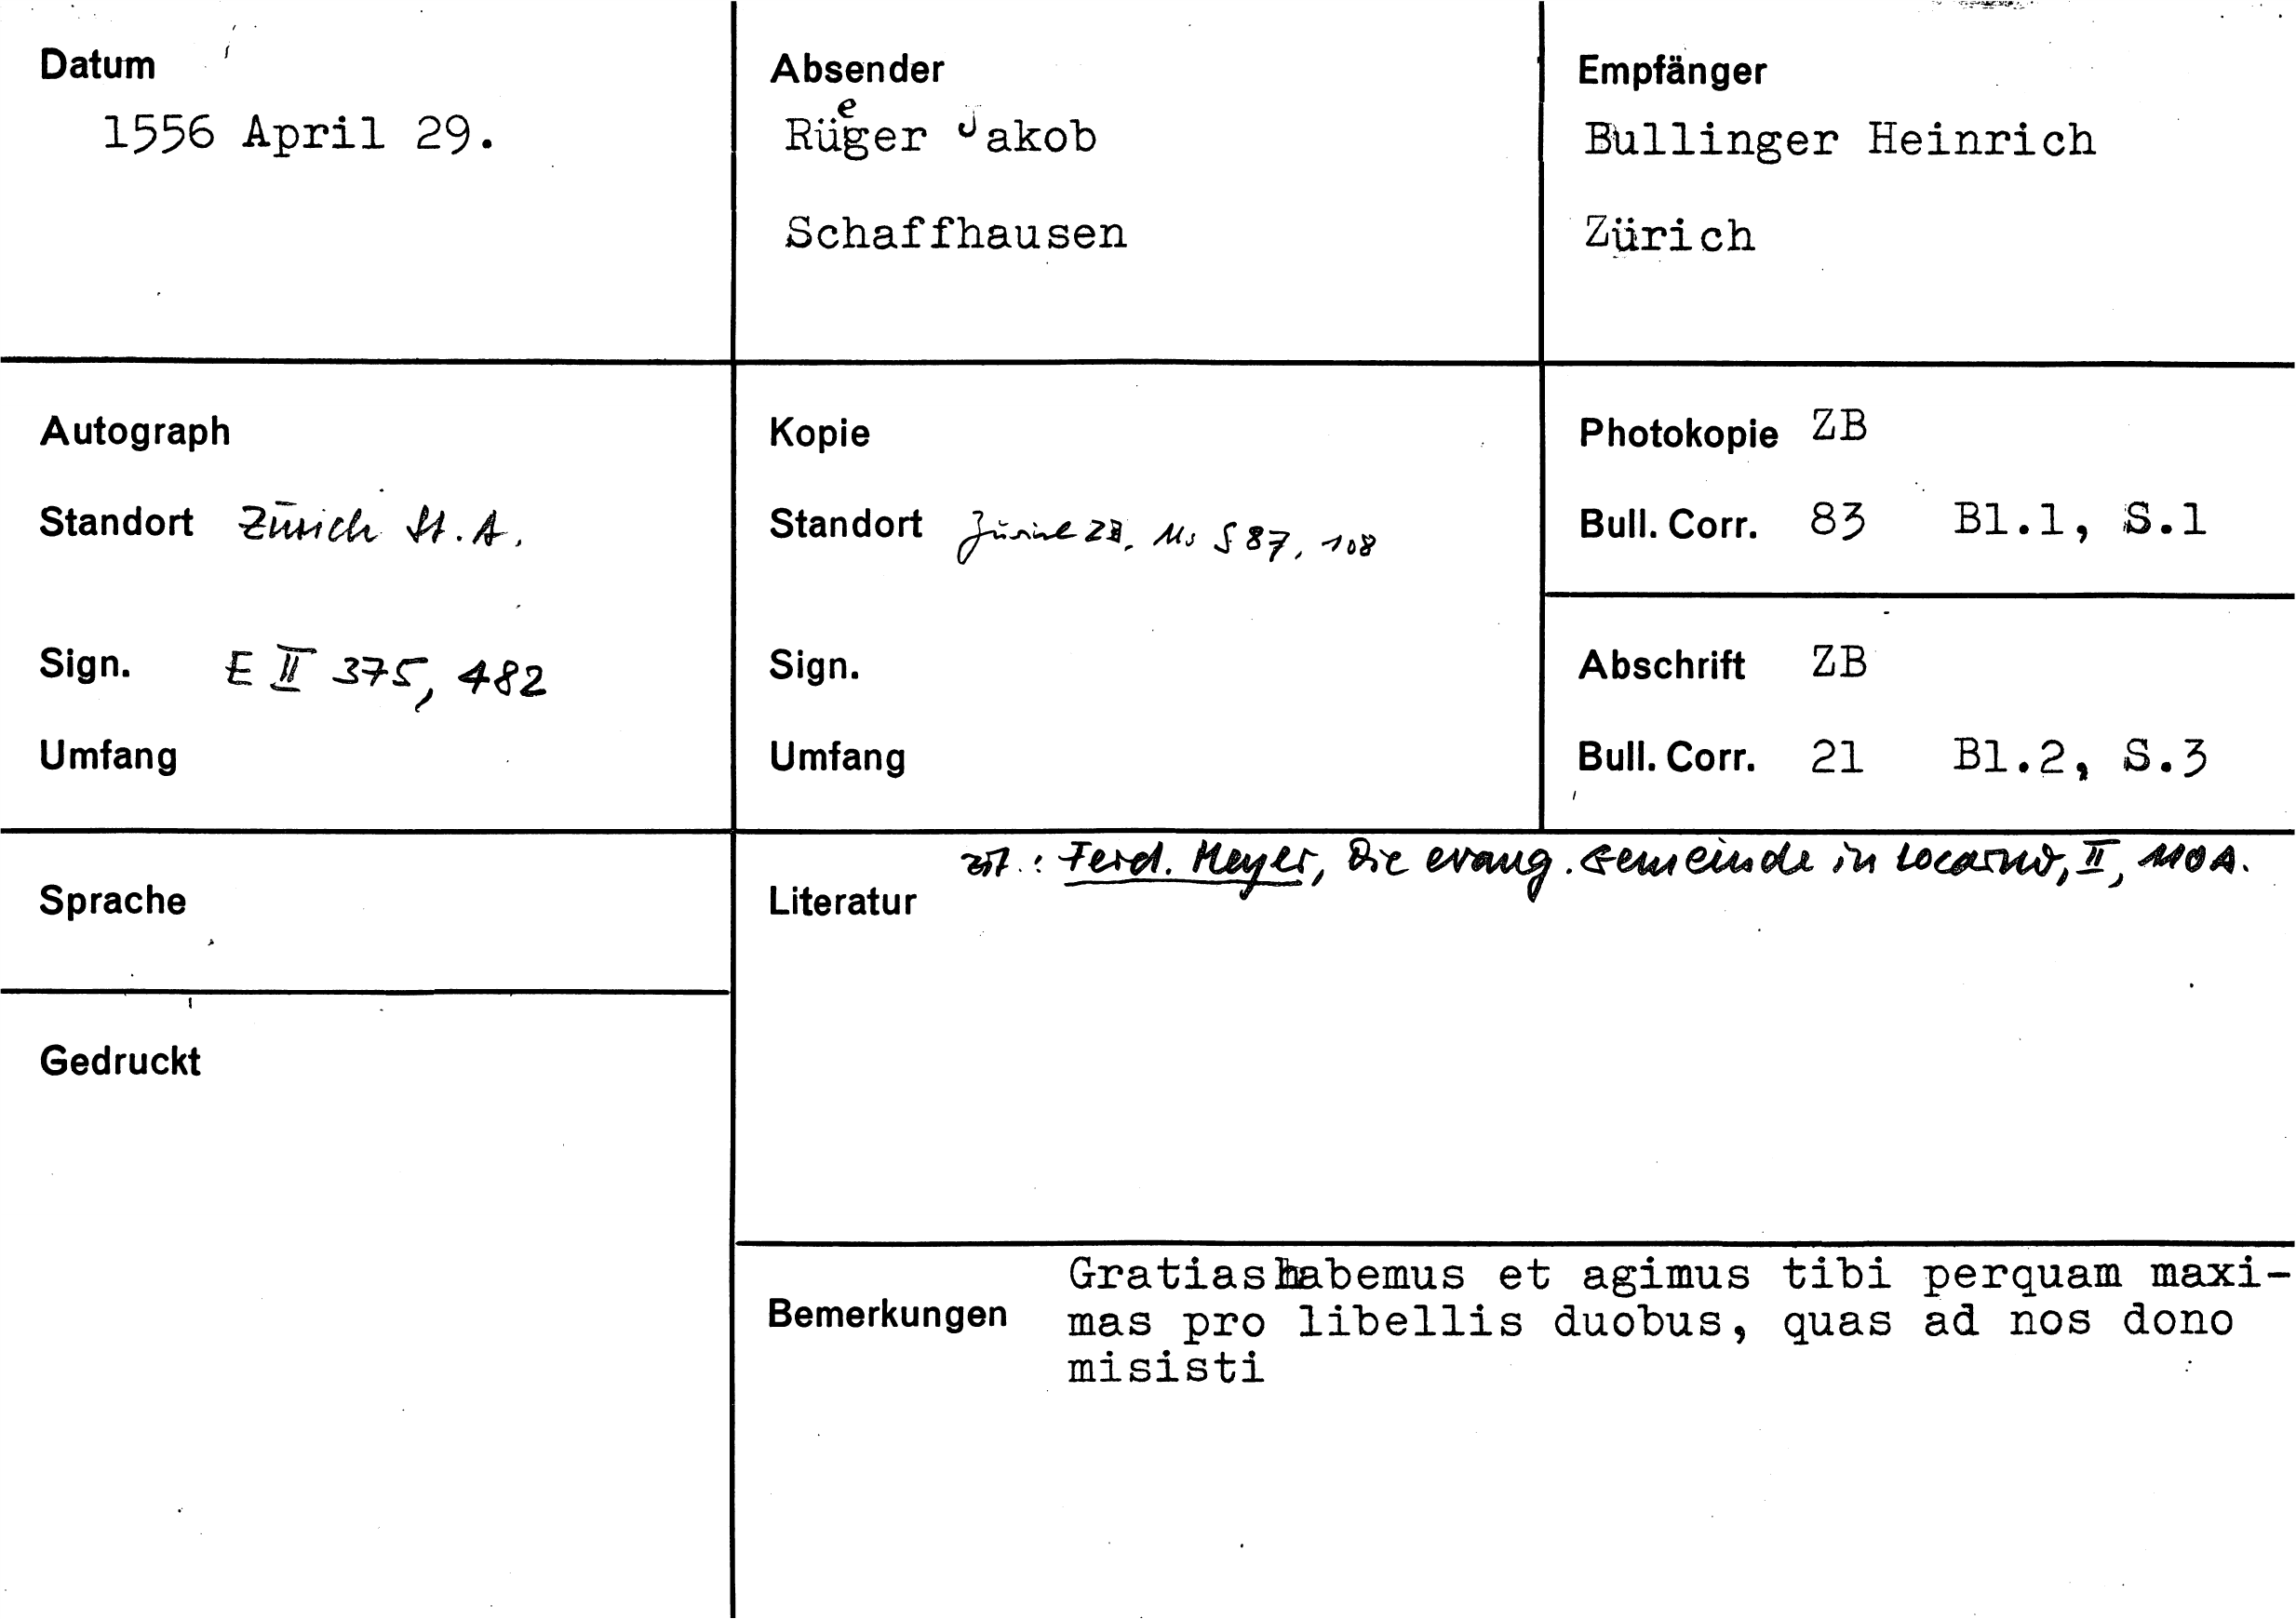 Datum
1556 April 29.
Absender
Rüeger Jakob
Schaffhausen
Empfänger
Bullinger Heinrich
Zürich
Autograph
Standort Zürich St. A.
Sign. E II 375, 482
Umfang
Kopie
Standort Zürich ZB, Ms S 87, 108
Sign.
Umfang
Photokopie ZB
Bull. Corr. 83 Bl.1, S.1
Abschrift ZB
Bull. Corr. 21 Bl.2, S.3
Sprache
Gedruckt
zit.: Ferd. Meyer, Die evang. Gemeinde in Locarno, II, 110 A.
Literatur
Gratias habemus et agimus tibi perquam maxi-
Bemerkungen mas pro libellis duobus, quas ad nos dono
misisti